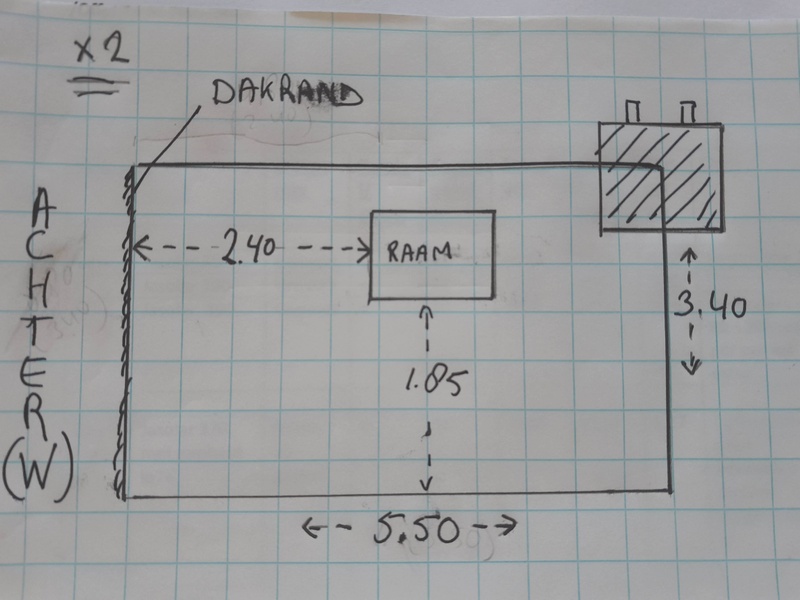 x2
DAKRAND
ACHTER
(W)
2.40
RAAM
3.40
1.85
5.50